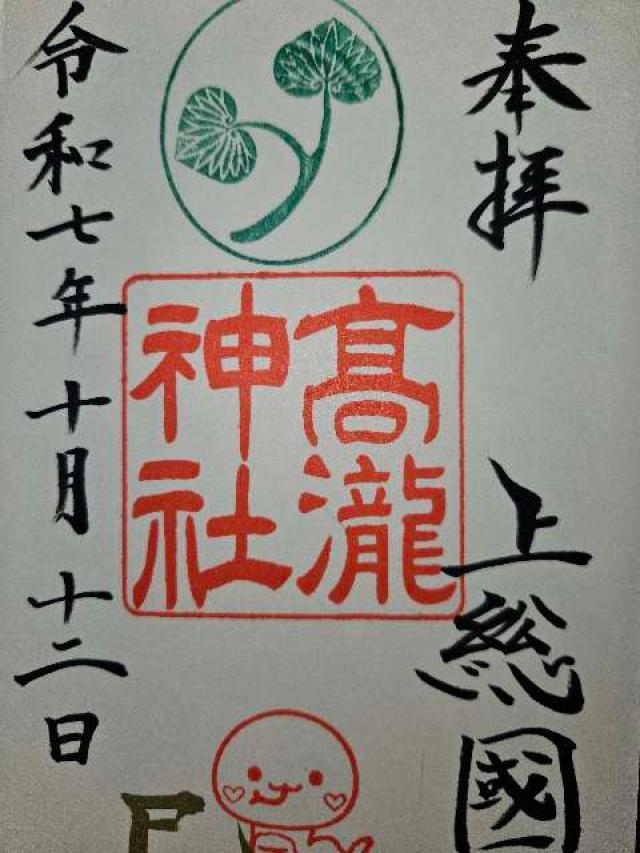 奉拝
上総國
髙瀧
神社
令和七年十月十二日